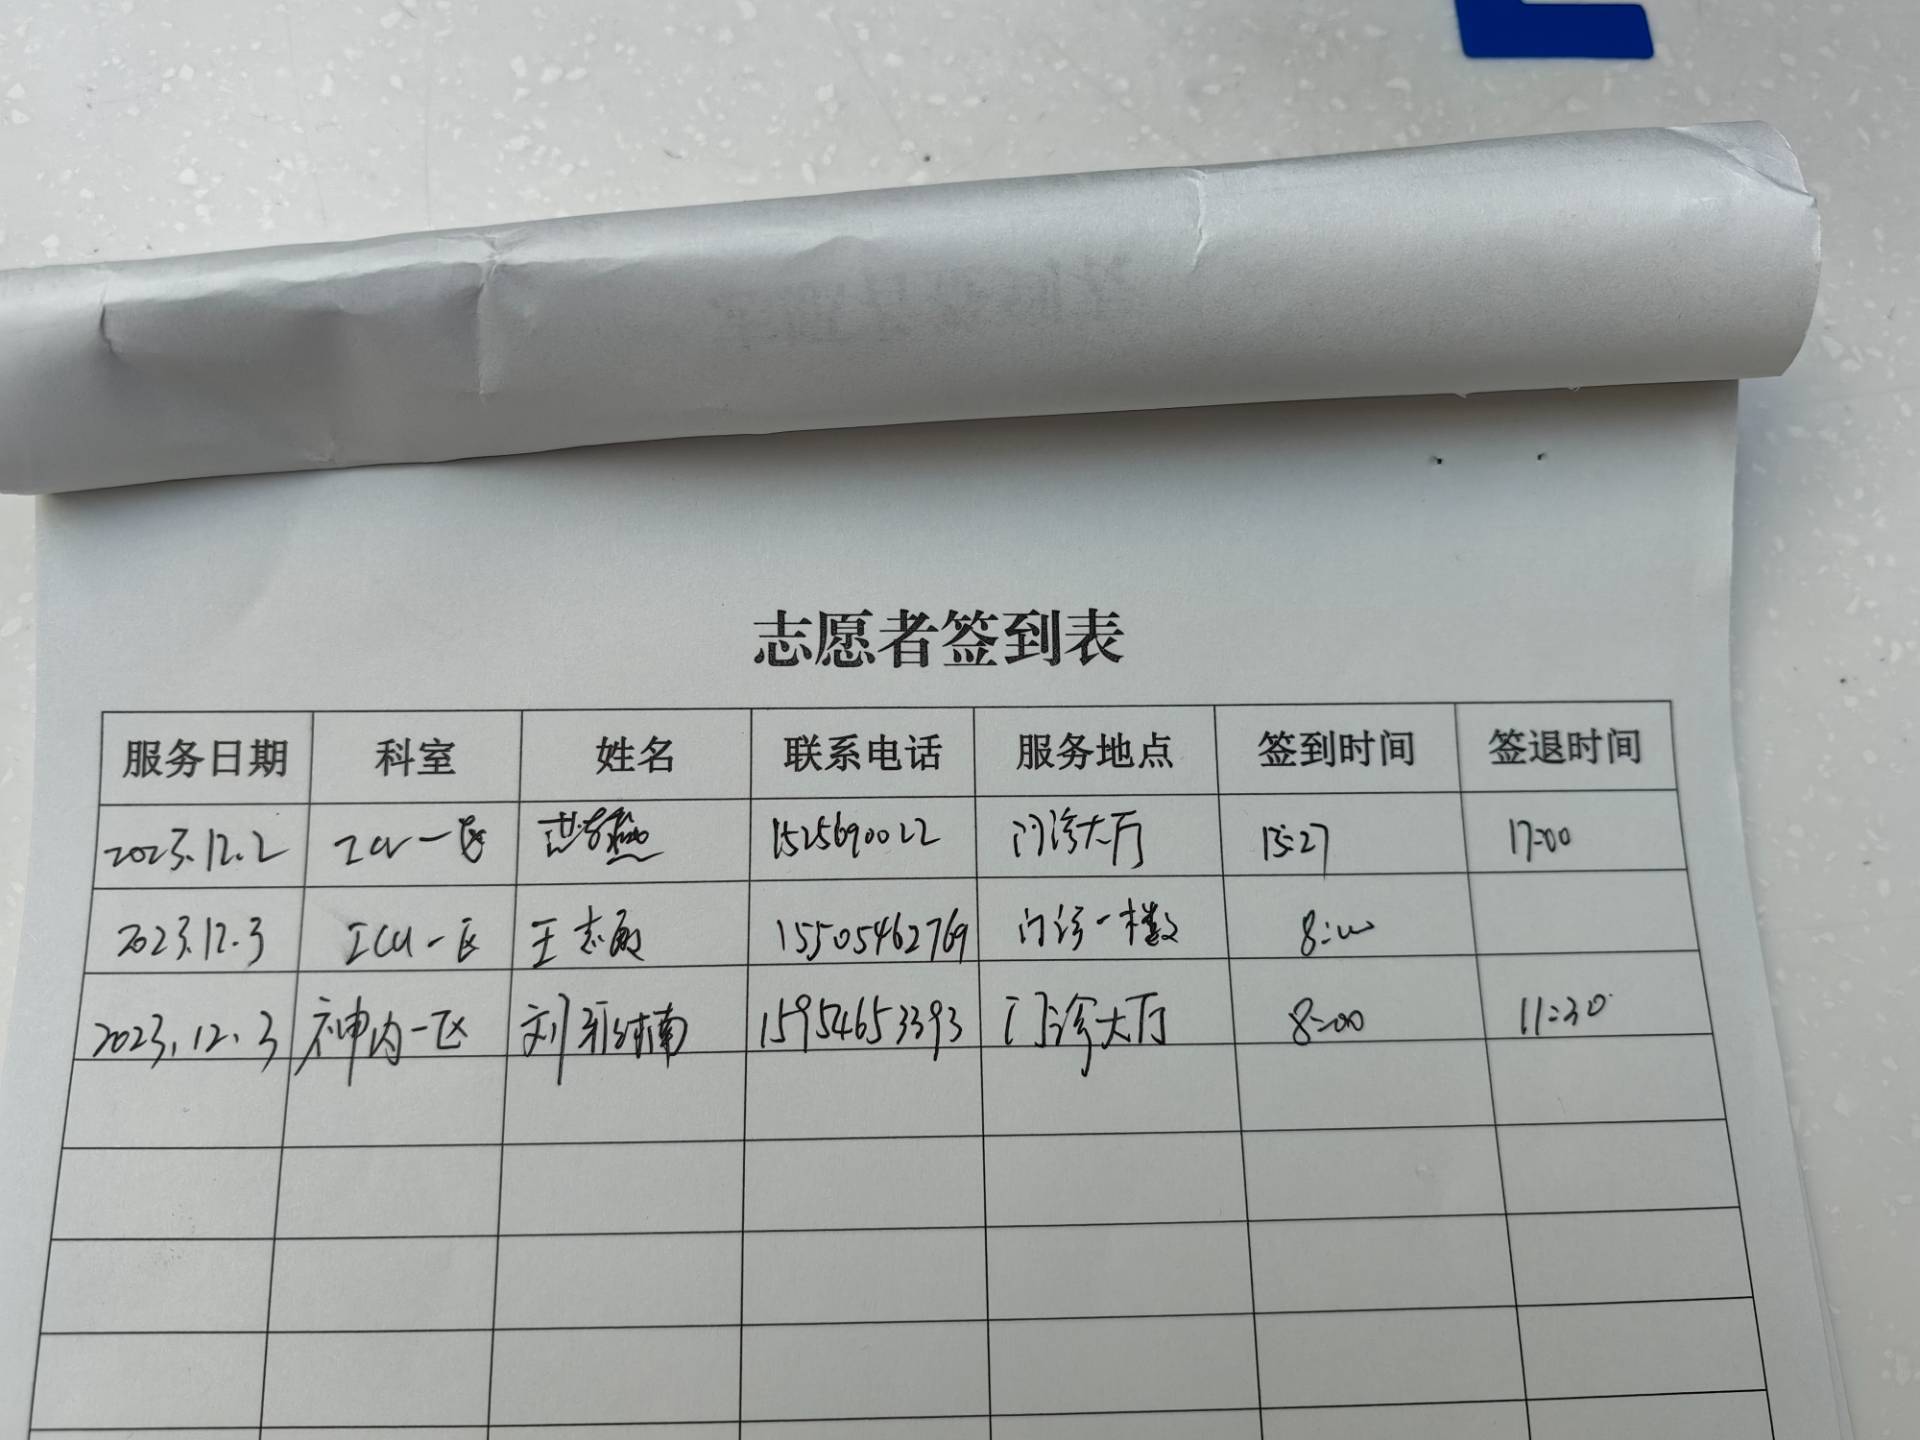 志愿者签到表
服务日期 科室 姓名 联系电话 服务地点 签到时间 签退时间
2023.12.2 ICU一区 1525690022 门诊大厅 15:27 17:00
2023.12.3 ICU一区 王志敏 15505462769 门诊一楼 8:00
2023.12.3 神内一区 刘 楠 15954653393 门诊大厅 8:00 11:30